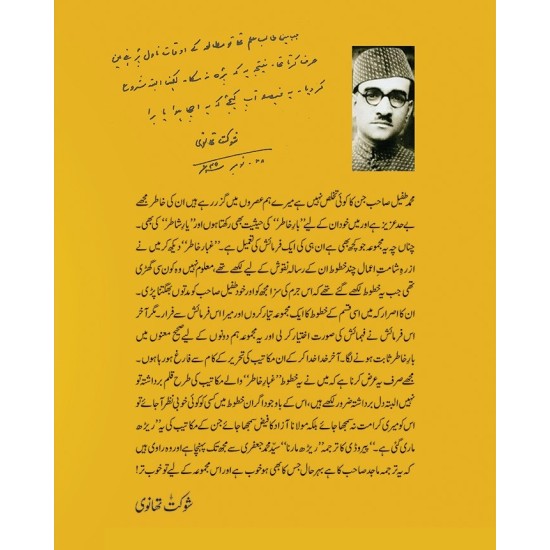 جب میں طالب علم تھا تو مطالعہ کے اوقات ناول پڑھنے میں
صرف کرتا تھا۔ نتیجہ یہ کہ پڑھ نہ سکا۔ لکھنا البتہ شروع
کر دیا۔ یہ فیصلہ آپ کیجئے کہ یہ اچھا ہوا یا برا
شوکت تھانوی
نومبر
محمد طفیل صاحب جن کا کوئی تخلص نہیں ہے میرے ہم عصروں میں گزر رہے ہیں ان کی خاطر مجھے
بے حد عزیز ہے اور میں خود ان کے لیے ’’بارِ خاطر‘‘ کی حیثیت بھی رکھتا ہوں اور ’’یارِ شاطر‘‘ کی بھی۔
چناں چہ یہ مجموعہ جو کچھ بھی ہے ان ہی کی ایک فرمائش کی تعمیل ہے۔ ’’غبارِ خاطر‘‘ دیکھ کر میں نے
ازرہِ شامتِ اعمال چند خطوط ان کے رسالہ نقوش کے لیے لکھے تھے، معلوم نہیں وہ کون سی گھڑی
تھی جب یہ خطوط لکھے گئے تھے کہ اس جرم کی سزا مجھ کو اور خود طفیل صاحب کو مدتوں بھگتنا پڑی۔
ان کا اصرار کہ میں اسی قسم کے خطوط کا ایک مجموعہ تیار کروں اور میرا اس فرمائش سے فرار۔ مگر آخر
اس فرمائش نے فہمائش کی صورت اختیار کر لی اور یہ مجموعہ ہم دونوں کے لیے صحیح معنوں میں
بارِ خاطر ثابت ہونے لگا۔ آخر خدا خدا کر کے ان مکاتیب کی تحریر کے کام سے فارغ ہو رہا ہوں۔
مجھے صرف یہ عرض کرنا ہے کہ میں نے یہ خطوط ’’غبارِ خاطر‘‘ والے مکاتیب کی طرح قلم برداشتہ تو
نہیں البتہ دل برداشتہ ضرور لکھے ہیں، اس کے باوجود اگر ان خطوط میں کسی کو کوئی خوبی نظر آ جائے تو
اس کو میری کرامت نہ سمجھا جائے بلکہ مولانا آزاد کا فیض سمجھا جائے جن کے مکاتیب کی یہ ’’ریڑھ
ماری گئی ہے۔‘‘ پیروڈی کا ترجمہ ’’ریڑھ مارنا‘‘ سیّد محمد جعفری سے مجھ تک پہنچا ہے اور وہ راوی ہیں
کہ یہ ترجمہ ماجد صاحب کا ہے بہر حال جس کا بھی ہو خوب ہے اور اس مجموعہ کے لیے تو خوب تر!
شوکت تھانوی